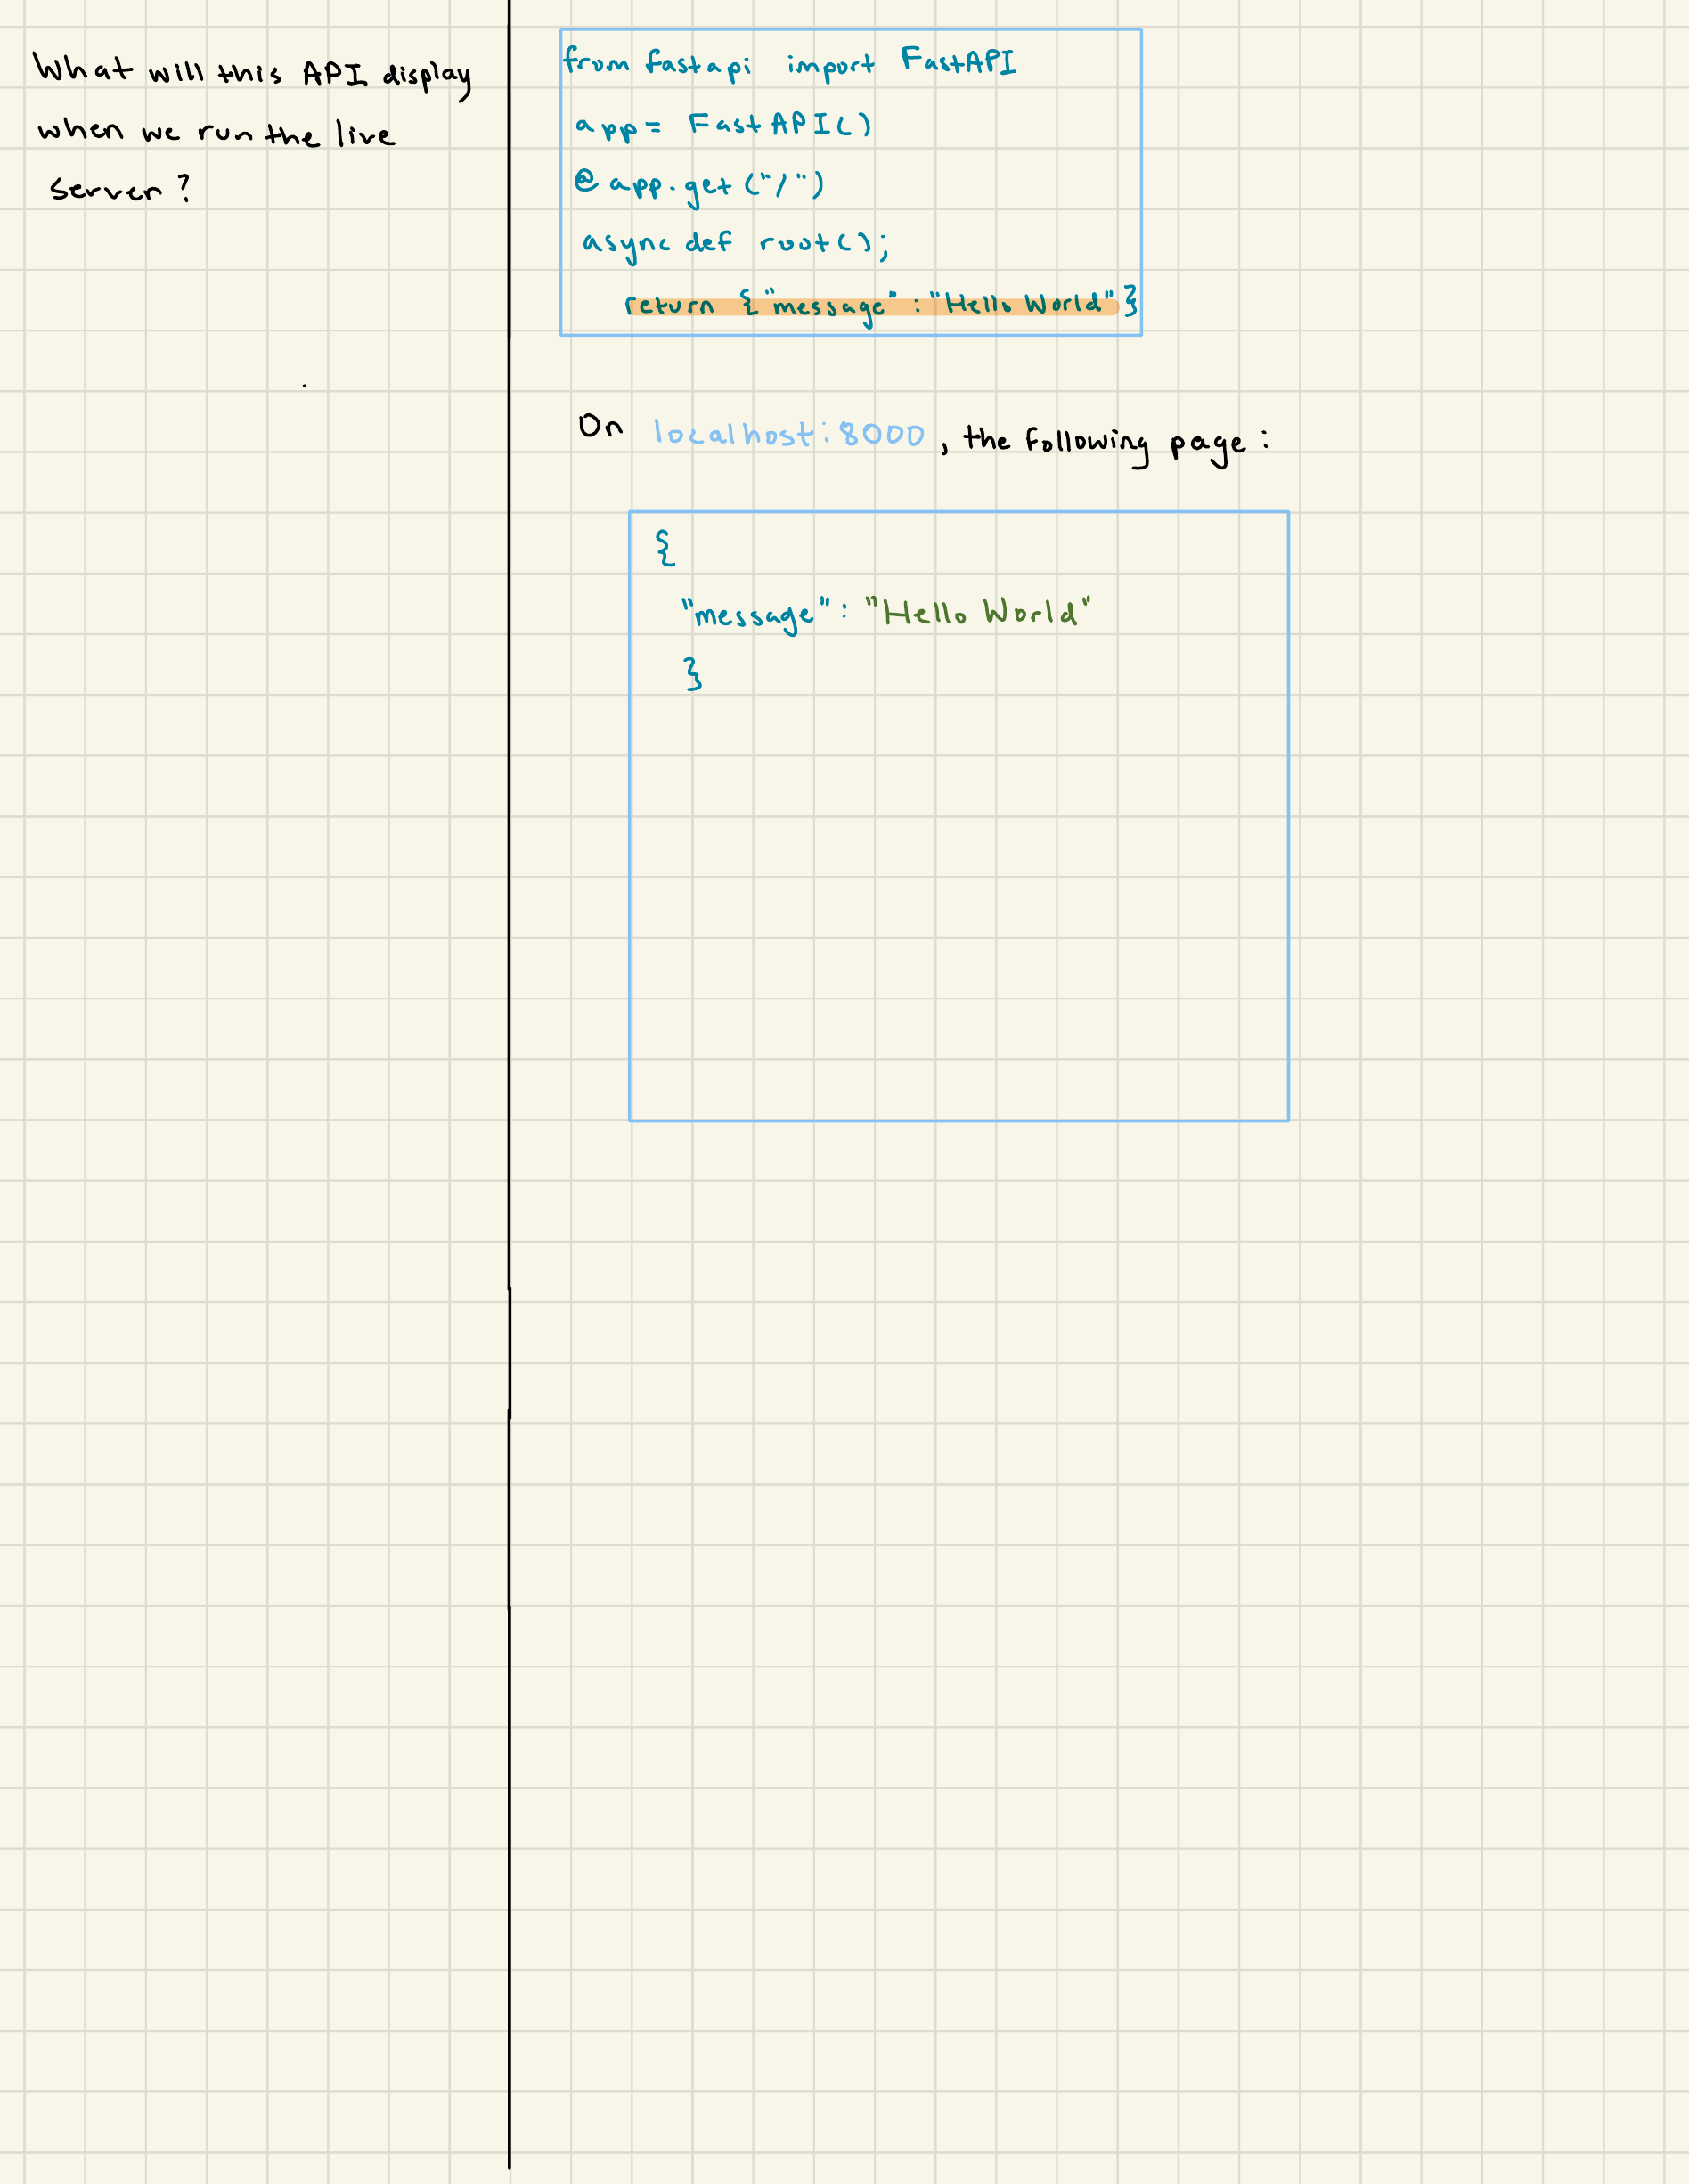 What will this API display
when we run the live
server?
from fastapi import FastAPI
app = FastAPI()
@app.get("/")
async def root();
return {"message" : "Hello World"}
On localhost:8000, the following page:
{
"message": "Hello World"
}